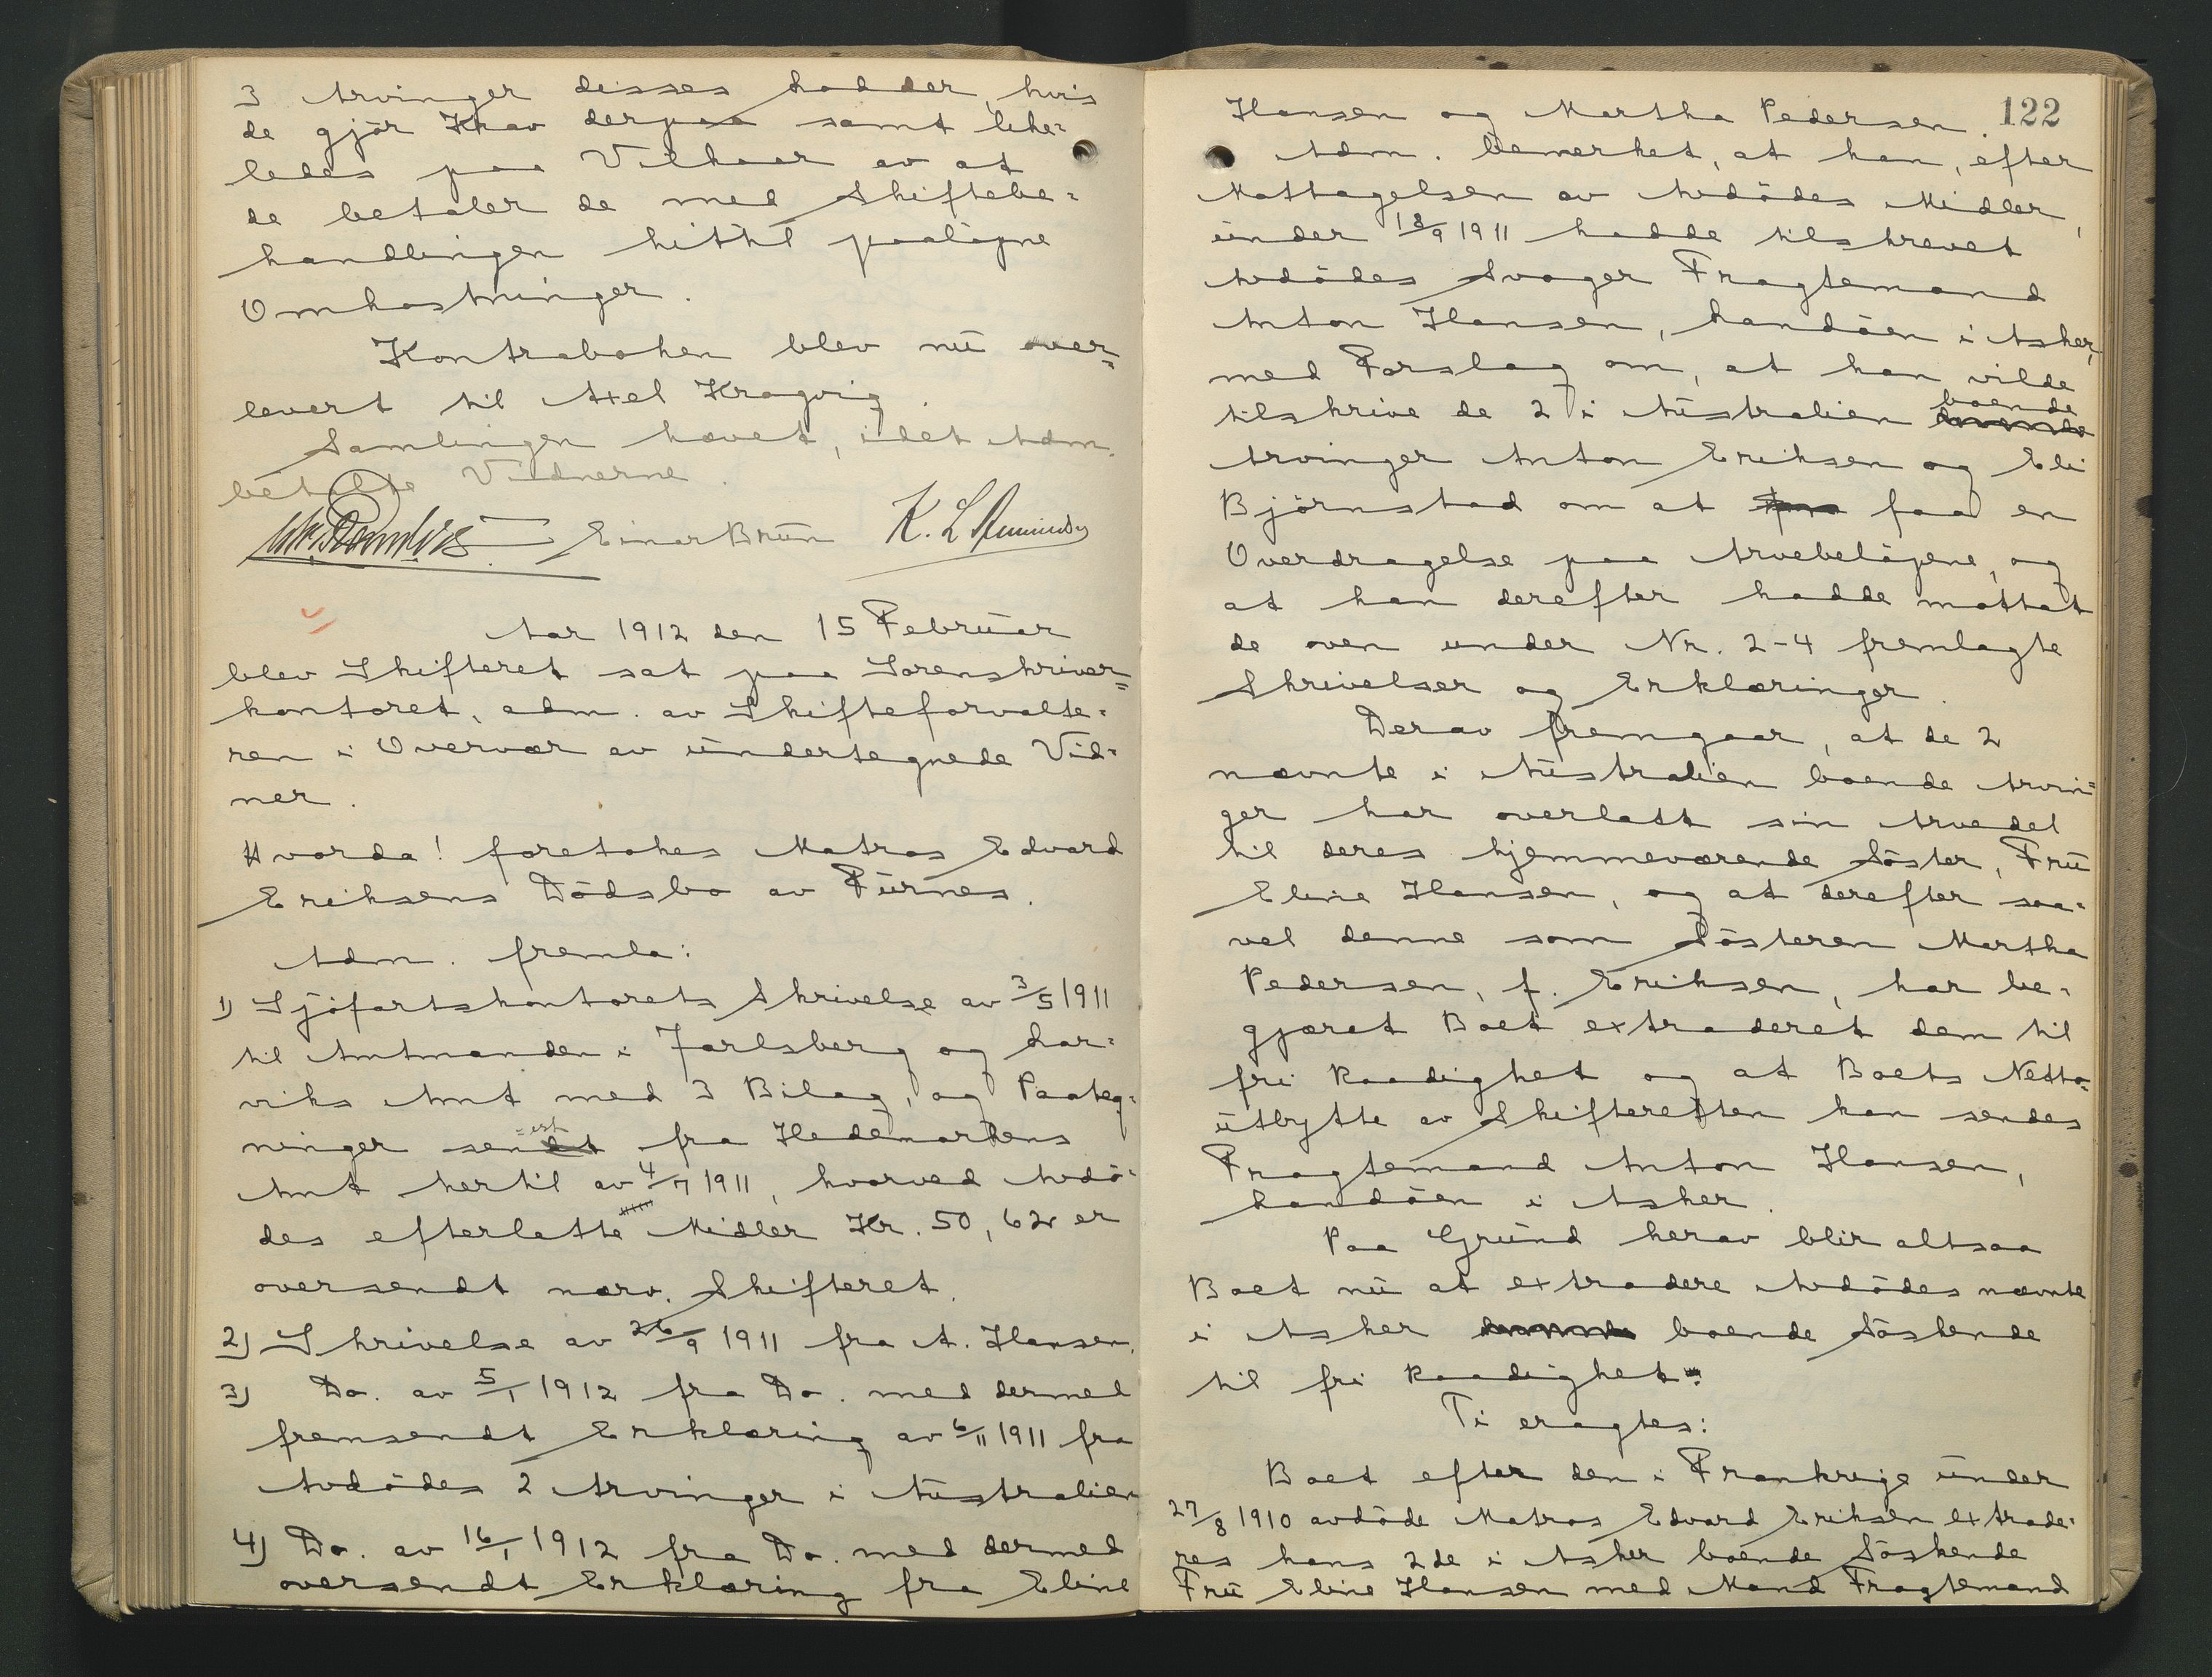 3 Arvinger disses Lodder, hvis
de gjør Krav derpaa samt like-
ledes paa Vilkaar av at
de betaler de med Skiftebe-
handlingen hittil paaløpne
Omkostninger.
Kontraboken blev nu over-
levert til Axel Kragvig.
Samlingen hævet, idet Adm.
betalte Vidnerne.
Einar Bruun K. L.
Aar 1912 den 15 Februar
blev Skifteret sat paa Sorenskriver-
kontoret, adm. av Skifteforvalte-
ren i Overvær av undertegnede Vid-
ner.
Hvorda! foretokes Matros Edvard
Eriksens Dødsbo av Furnes.
Adm. fremla:
1) Sjøfartskontorets Skrivelse av 3/5 1911
til Amtmanden i Jarlsberg og Lar-
viks Amt med 3 Bilag, og Paateg-
ninger senest fra Hedemarkens
Amt hertil av 4/7 1911, hvorved Avdø-
des efterlatte Midler Kr. 50,62 er
oversendt nærv. Skifteret.
2) Skrivelse av 26/9 1911 fra A. Hansen.
3) Do. av 5/1 1912 fra Do. med dermed
fremsendt Erklæring av 6/11 1911 fra
Avdødes 2 Arvinger i Australien
4) Do. av 16/1 1912 fra Do. med dermed
oversendt Erklæring fra Eline
122
Hansen og Martha Pedersen.
Adm. bemerket, at han, efter
Mottagelsen av Avdødes Midler,
under 18/9 1911 hadde tilskrevet
Avdødes Svoger Fragtemand
Anton Hansen, Landøen i Asker,
med Forslag om, at han vilde
tilskrive de 2 i Australien boende
Arvinger Anton Eriksen og Eli
Bjørnstad om at faa en
Overdragelse paa Arvebeløpene, og
at han derefter hadde mottat
de oven under Nr. 2-4 fremlagte
Skrivelser og Erklæringer.
Derav fremgaar, at de 2
nævnte i Australien boende Arvin-
ger har overlatt sin Arvedel
til deres hjemmeværende Søster, Fru
Eline Hansen, og at derefter saa-
vel denne som Søsteren Martha
Pedersen, f. Eriksen, har be-
gjæret Boet extraderet dem til
fri Raadighet og at Boets Netto-
utbytte av Skifteretten kan sendes
Fragtemand Anton Hansen,
Landøen i Asker.
Paa Grund herav blir altsaa
Boet nu at extradere Avdødes nævnte
i Asker boende Søskende
til fri Raadighet.
Ti eragtes:
Boet efter den i Frankrige under
27/8 1910 avdøde Matros Edvard Eriksen extrade-
res hans 2de i Asker boende Søskende
Fru Eline Hansen med Mand Fragtemand